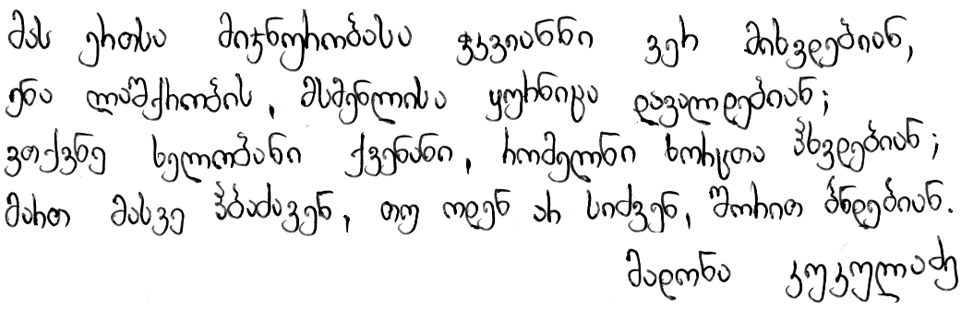 მას ერთსა მიჯნურობასა ჭკვიანნი ვერ მიხვდებიან,
ენა დაშვრების, მსმენლისა ყურნიცა დავალდებიან;
ვთქვნე ხელობანი ქვენანი, რომელნი ხორცთა ჰხვდებიან;
მართ მასვე ჰბაძავენ, თუ ოდენ არ სიძვენ, შორით ბნდებიან.
მადონა კუკულაძე